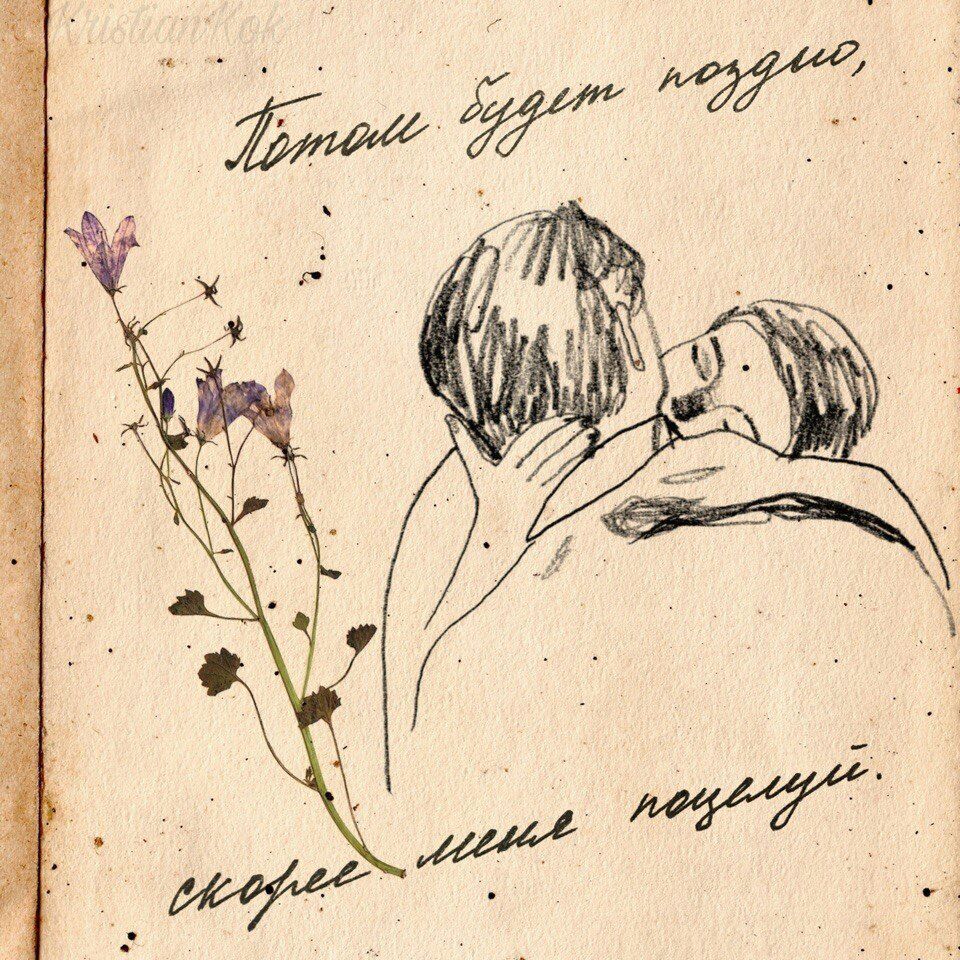 KristianKok
Потом будет поздно,
скорее меня поцелуй.